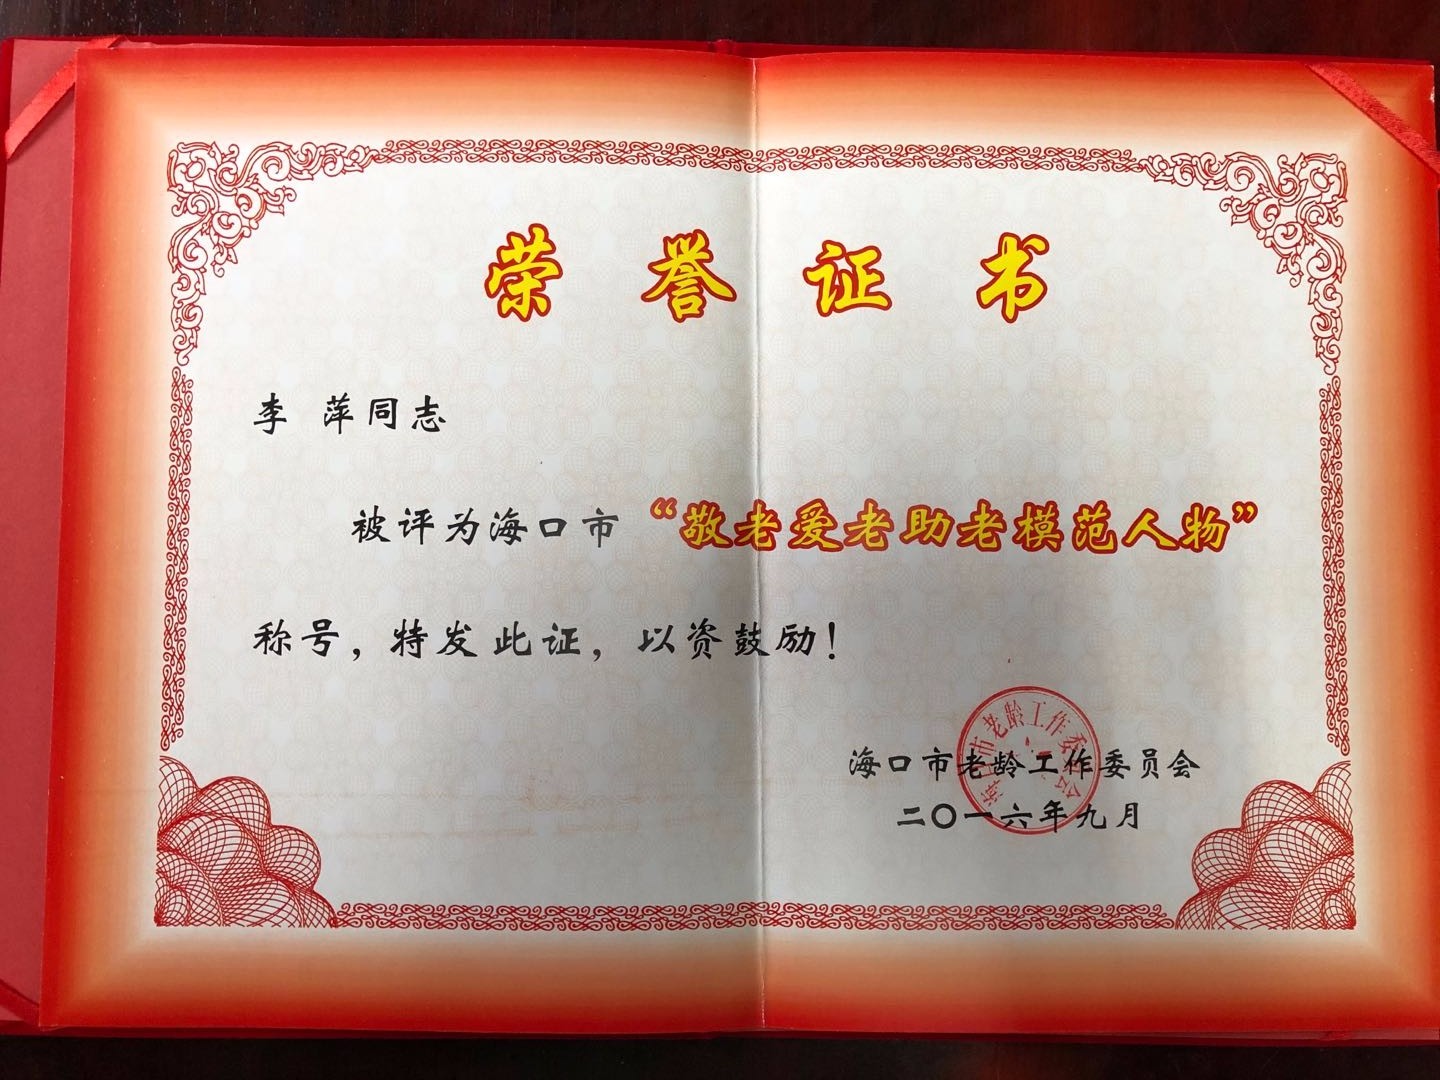 荣誉证书
李 萍同志
被评为海口市“敬老爱老助老模范人物”
称号，特发此证，以资鼓励！
海口市老龄工作委员会
二〇一六年九月
海口市老龄工作委员会